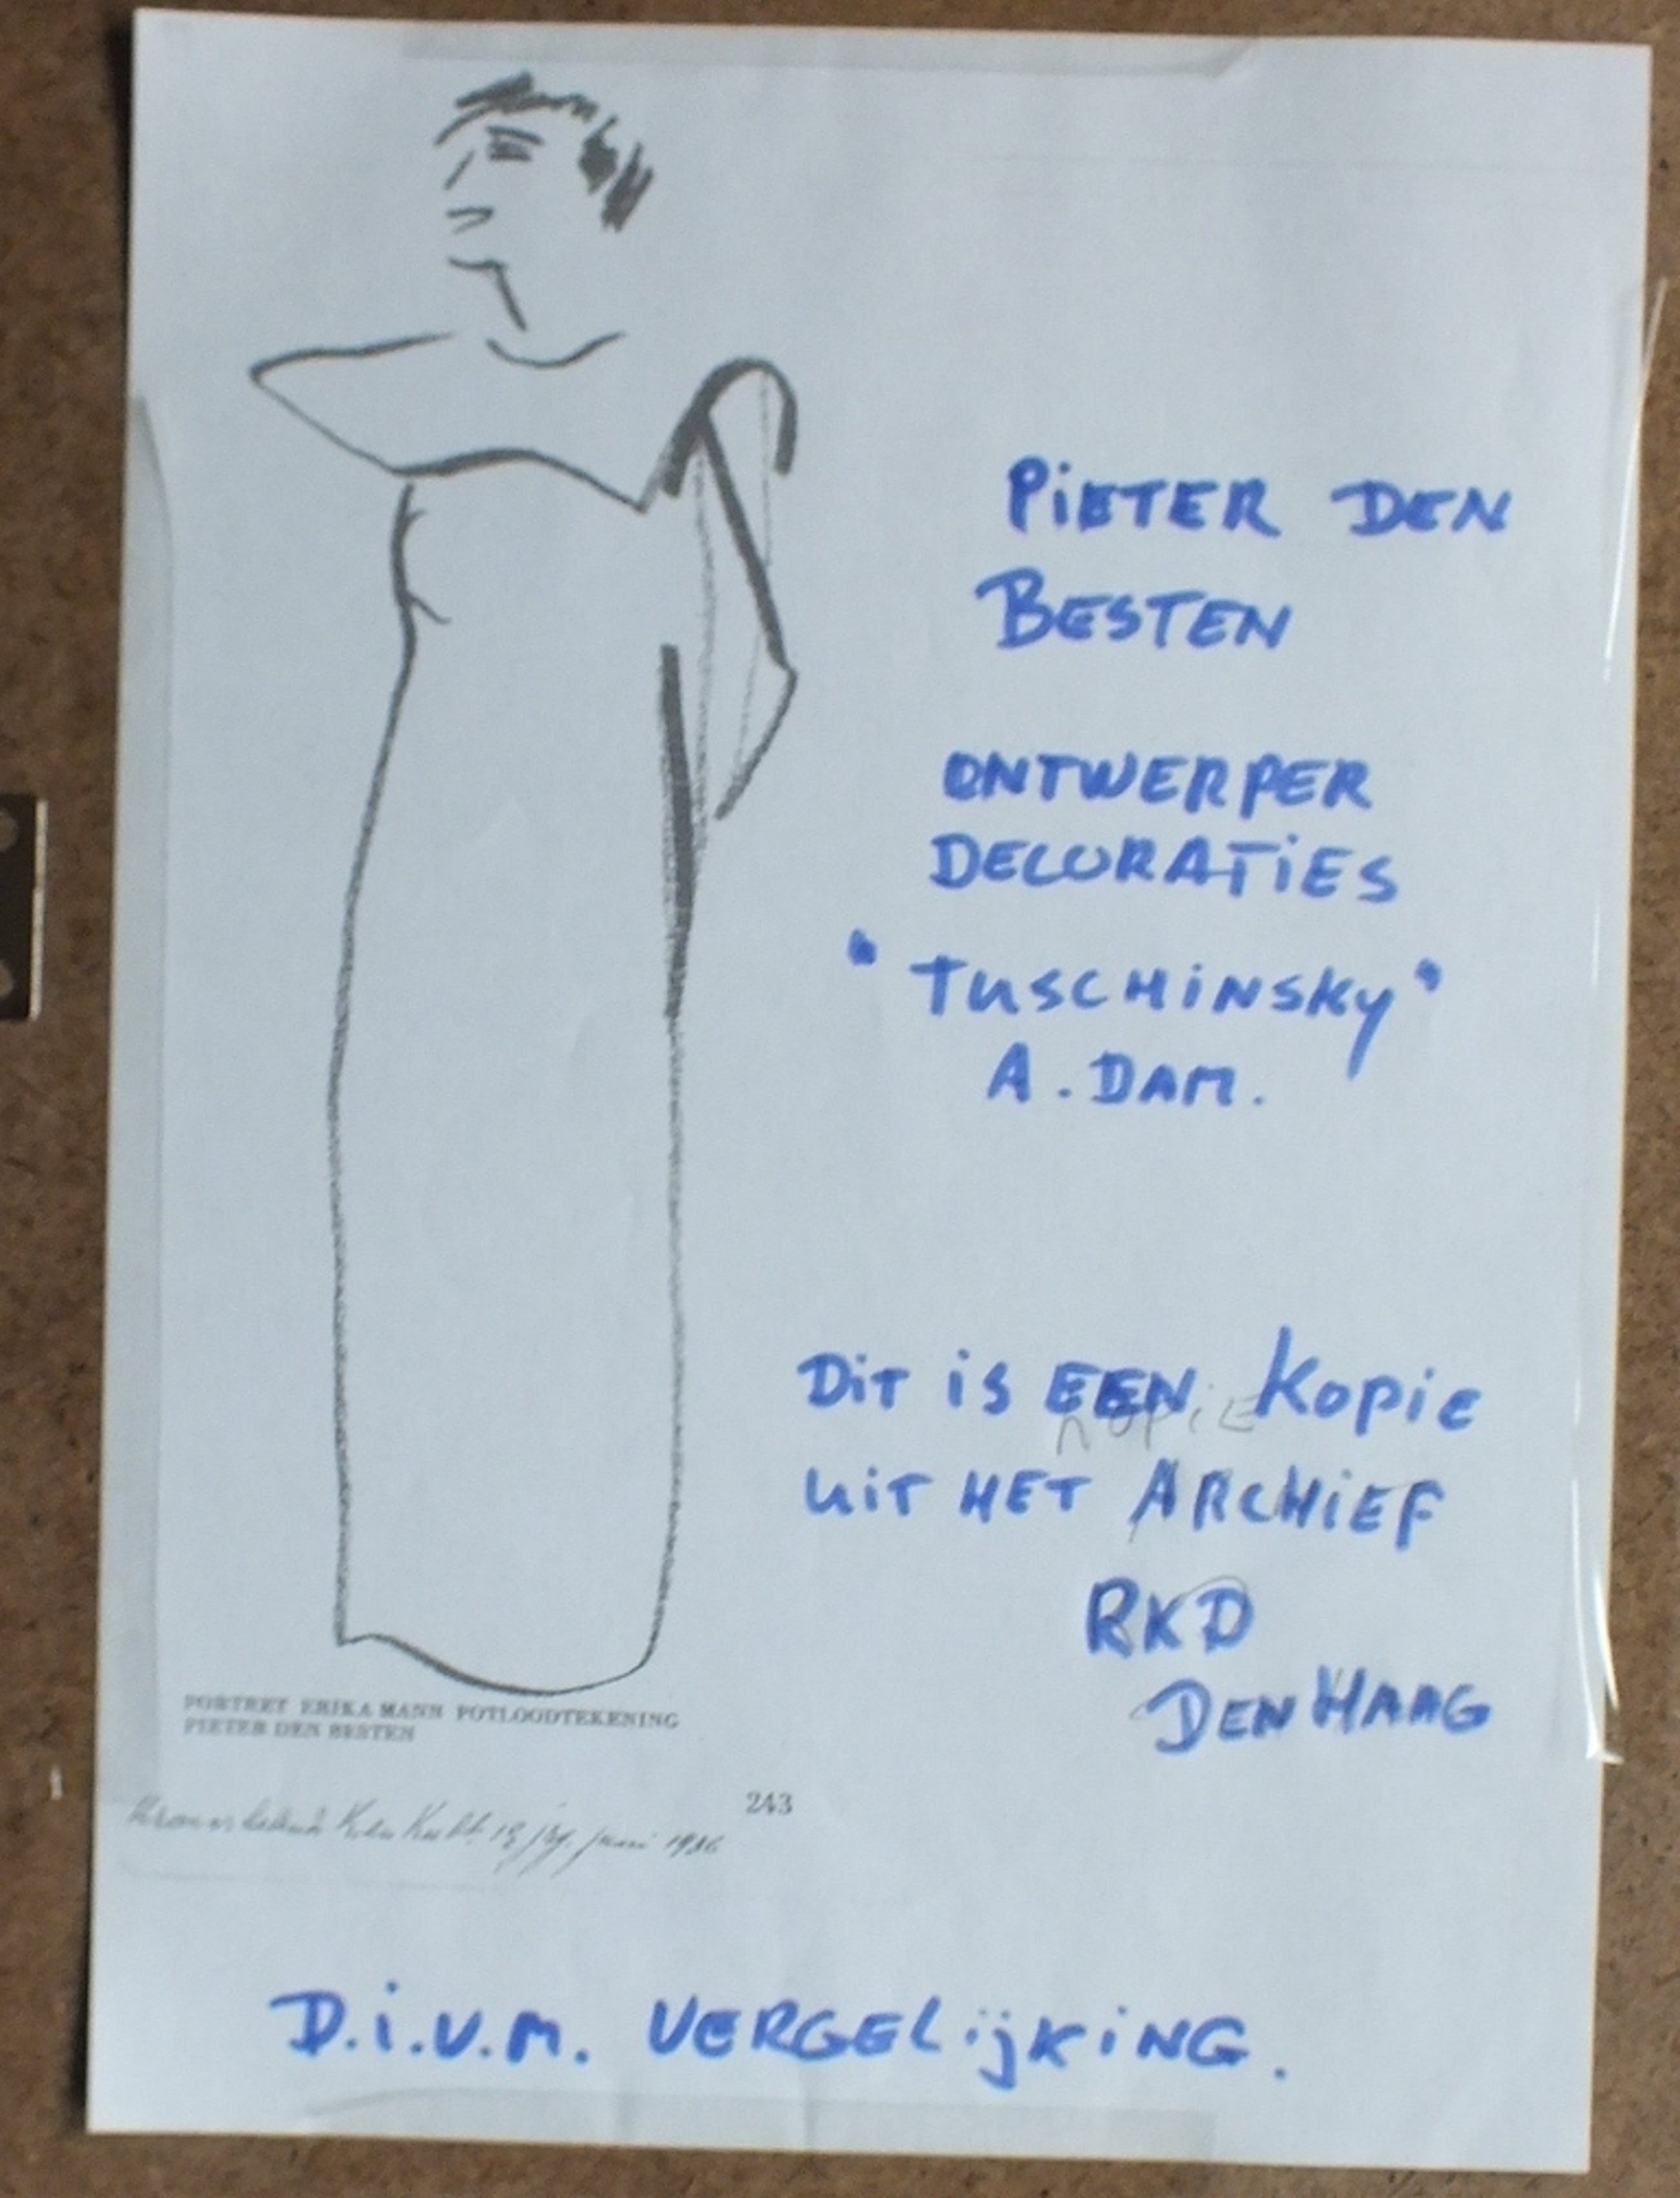 PiETER DEN
BESTEN
ONTWERPER
DECORATiES
"TUSCHiNSKy"
A.DAM.
DiT iS EEN KOPiE
KOPiE
UiT HET ARCHiEF
RKD
DEN HAAG
PORTRET ERIKA MANN POTLOODTEKENING
PIETER DEN BESTEN
243
juni 1936
D.i.V.M. VERGELijKiNG.